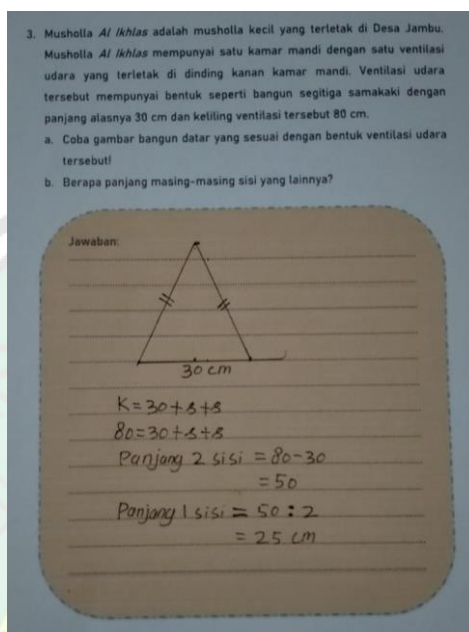 3. Musholla Al Ikhlas adalah musholla kecil yang terletak di Desa Jambu.
Musholla Al Ikhlas mempunyai satu kamar mandi dengan satu ventilasi
udara yang terletak di dinding kanan kamar mandi. Ventilasi udara
tersebut mempunyai bentuk seperti bangun segitiga samakaki dengan
panjang alasnya 30 cm dan keliling ventilasi tersebut 80 cm.
a. Coba gambar bangun datar yang sesuai dengan bentuk ventilasi udara
tersebut!
b. Berapa panjang masing-masing sisi yang lainnya?
Jawaban:
30 cm
K = 30 + s + s
80 = 30 + s + s
Panjang 2 sisi = 80 - 30
= 50
Panjang 1 sisi = 50 : 2
= 25 cm